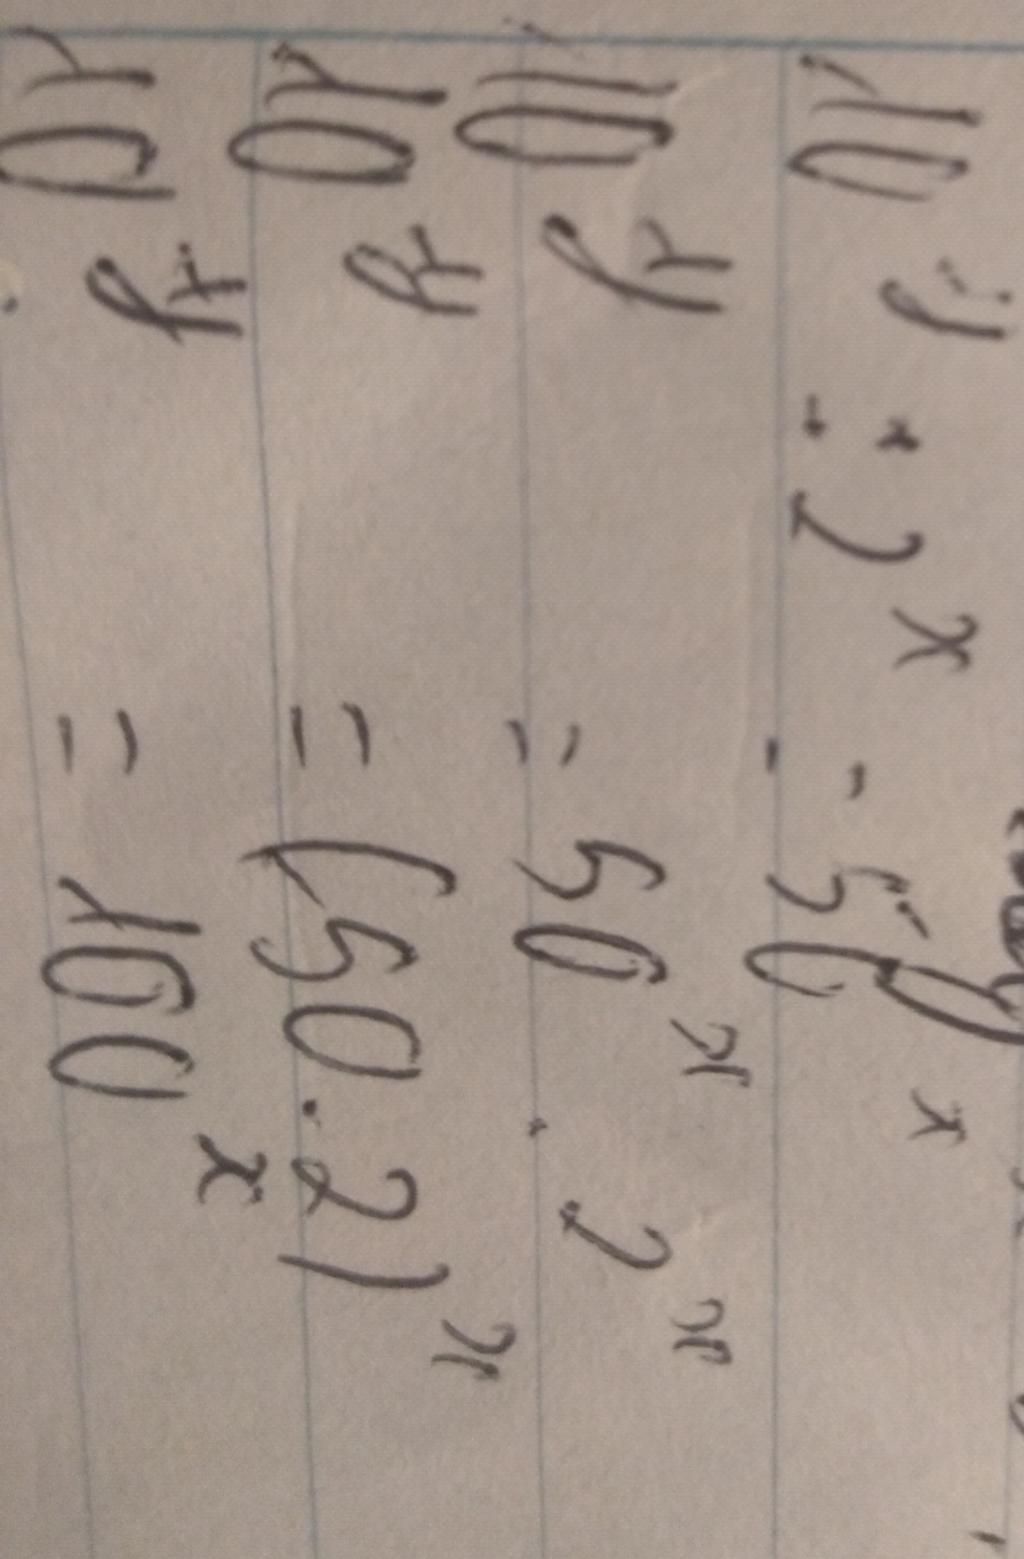 10^y : 2^x = 50^x
10^y = 50^x . 2^x
10^y = (50 . 2)^x
10^y = 100^x